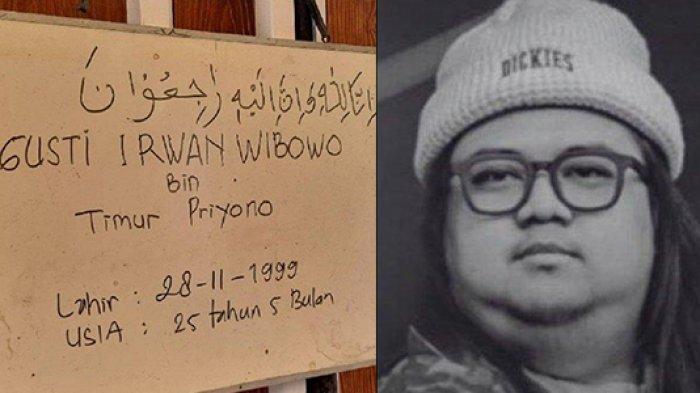 اِنَّا لِلّٰهِ وَاِنَّا اِلَيْهِ رَاجِعُوْنَ
GUSTI IRWAN WIBOWO
Bin
Timur Priyono
Lahir : 28-11-1999
USIA : 25 tahun 5 Bulan
DICKIES